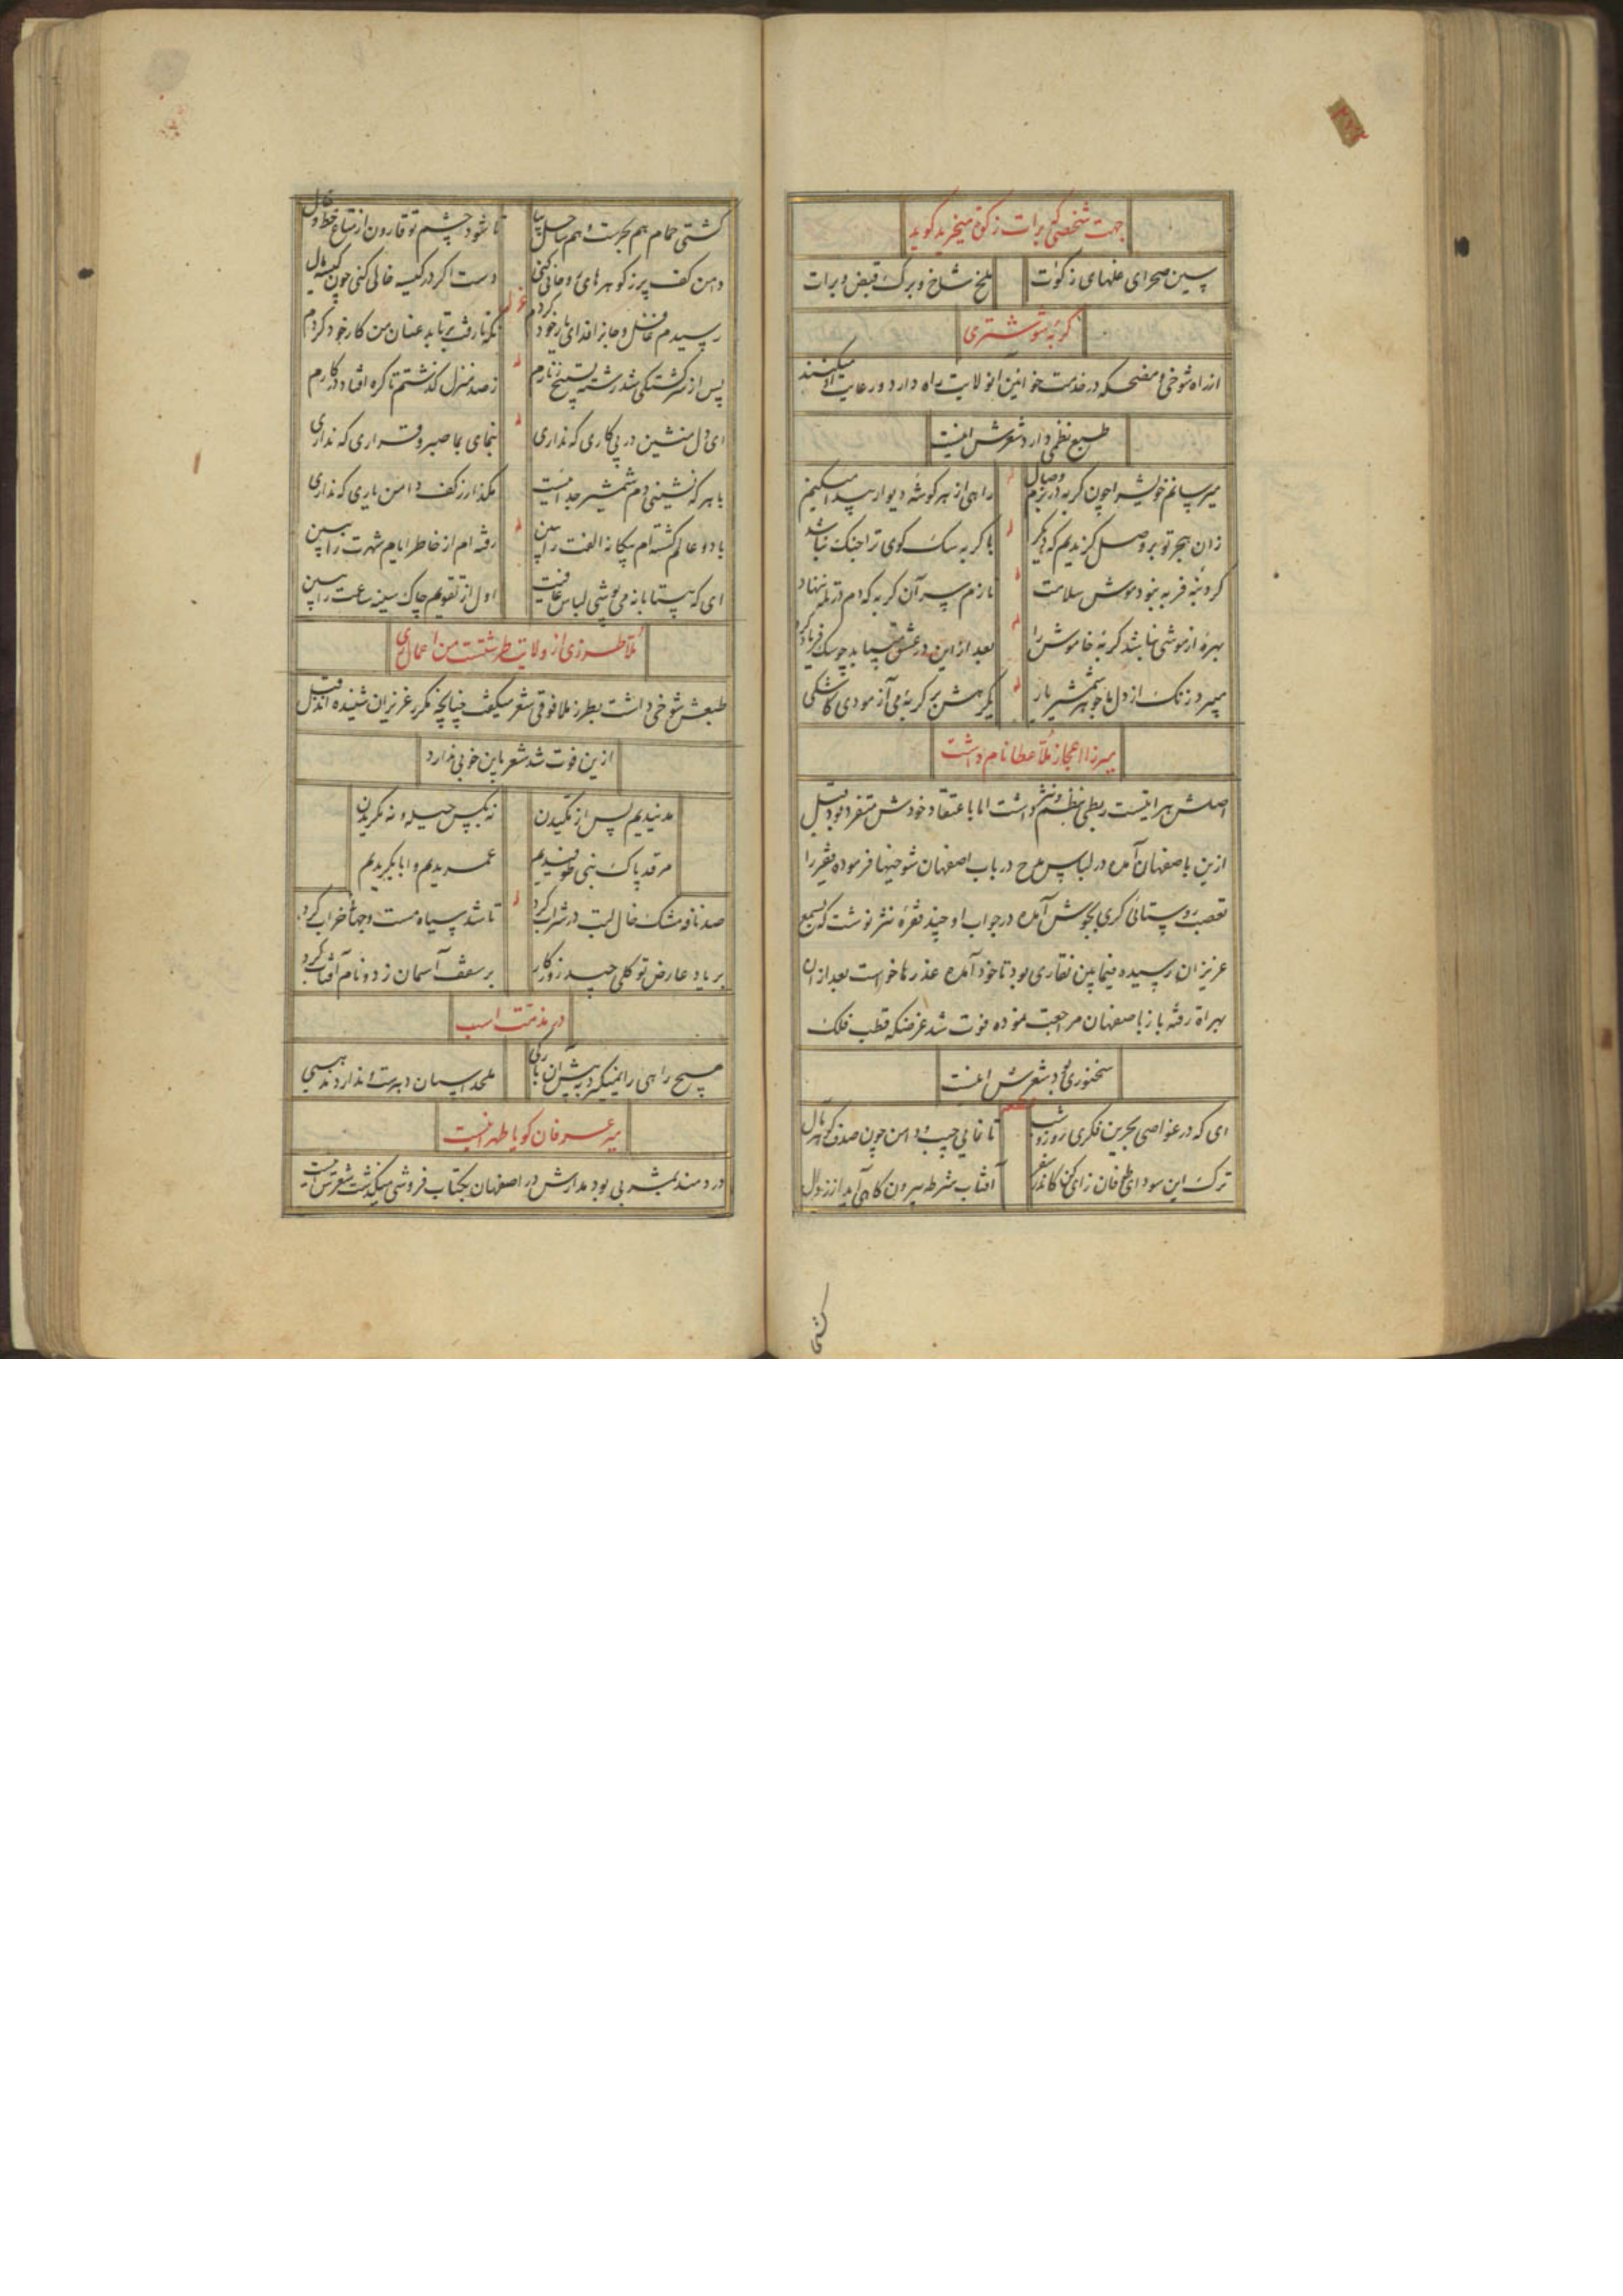 جهت شخصی که برات زکوة میخرید کوید
سپین صحرای غلهای زکوت
ملخ شاخ و برک قبض و برات
کربه شوشتری
از راه شوخی و مضحکه در خدمت خوانین انولایت راه دارد و رعایت میکنند
طبع نظمی دارد شعرش اینست
میرسانم خویش را چون کربه در بزم وصال
راهی از هر کوشه دیوار پیدا میکنم
زان هجر تو بر وصل کزیدیم که دیکر
با کربه سک کوی ترا جنک نباشد
کر دنبه فربه نبود موش سلامت
نازم سر آن کربه که دم در تله ننهاد
بهره از موشی نباشد کربه خاموش را
بعد ازین در عشق میباید چو سک فریاد کرد
میبرد زنک از دل ما جوهر شمشیر یار
یکرهش بر کربه می آزمودی کاشکی
میرزا اعجاز ملا عطا نام داشت
اصلش هراتیست ربطی بنظم و نثر داشت اما باعتقاد خودش متفرد بود قبل
ازین باصفهان آمده در لباس مدح در باب اصفهان شوخیها فرموده فقیر را
تعصب روستائی کری بجوش آمده در جواب او چند فقره نثر نوشت که بسمع
عزیزان رسیده فیمابین نقاری بود تا خود آمده عذرها خواست بعد از ان
بهراة رفته باز باصفهان مراجعت نموده فوت شد غرضکه قطب فلک
سخنوری بود شعرش اینست
ای که در غواصی بحرین فکری روز و شب
تا نمایی جیب و دامن چون صدف کوهر مال
ترک این سودای طوفان زای کن کاندر سفر
آفتاب شرطه بیرون کاهی آید از زوال
کشتی
کشتی حمام هم بحرست و هم ساحل بیا
تا شود چشم تو قارون از متاع خط و خال
دامن کف پر ز کوهرهای و خالی کنی
دست اکر در کیسه خالی کنی چون کیسه مال
رسیدم غافل و جانرا فدای یار خود کردم
نکه تا رفت برتابد عنان من کار خود کردم
پس از سرکشتکی شد رشته تسبیح زنارم
ز صد منزل کذشتم تا کره افتاد در کارم
ای دل منشین در پی کاری که نداری
بنمای بما صبر و قراری که نداری
با هر که نشینی دم شمشیر جدائیست
مکذار ز کف دامن یاری که نداری
با دو عالم کشته ام بیکانه الفت را ببین
رفته ام از خاطر ایام شهرت را ببین
ای که بیتابانه می پوشی لباس عافیت
اول از تقویم چاک سینه ساعت را ببین
ملا طرزی از ولایت طرشتست من اعمال ری
طبعش شوخی داشت بطرز ملا فوقی شعر میکفت چنانچه مکرر عزیزان شنیده اند قبل
ازین فوت شد شعر باین خوبی ندارد
مدنیدیم پس از مکیدن
نه بکس حیله و نه مکریدن
مرقد پاک نبی طوفیدیم
عمریدیم و ابابکریدیم
صد نافه مشک خال لبت در شراب کرد
تا شد سیاه مست و جهانرا خراب کرد
بر یاد عارض تو کلی چید روزکار
بر سقف آسمان زد و نام آفتاب کرد
در مذمت اسب
هیچ راهی را نمیکیرد به پیش آن بارکی
ملحد اسبان دهرست و ندارد مذهبی
میر عرفان کویا طهرانیست
دردمند مشربی بود مدارش در اصفهان بکتاب فروشی میکذشت شعرش اینست